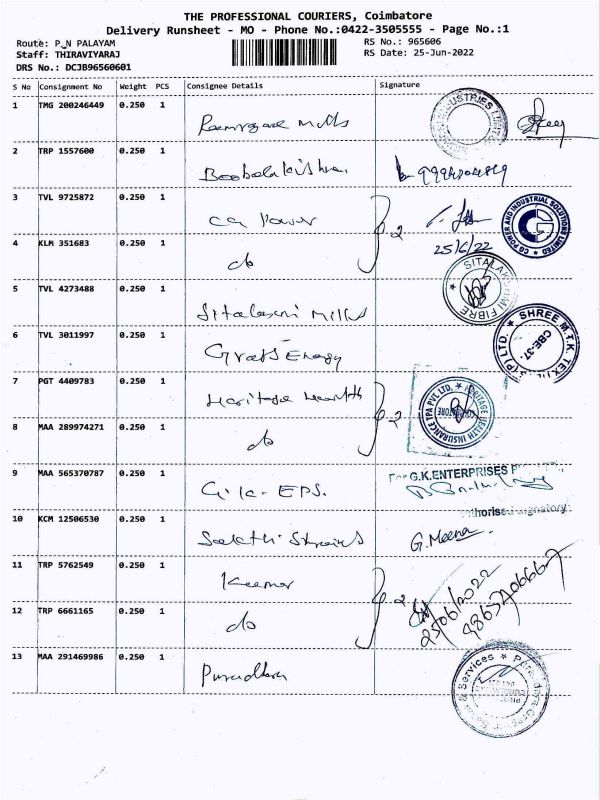 THE PROFESSIONAL COURIERS, Coimbatore
Delivery Runsheet - MO - Phone No.:0422-3505555 - Page No.:1
Route: P_N PALAYAM
RS No.: 965606
Staff: THIRAVIYARAJ
RS Date: 25-Jun-2022
DRS No.: DCJB96560601
S No Consignment No Weight PCS Consignee Details Signature
1 TMG 200246449 0.250 1 Mills
2 TRP 1557600 0.250 1
3 TVL 9725872 0.250 1 CG Power 2
4 KLM 351683 0.250 1 do 25/6/22
CG POWER AND INDUSTRIAL SOLUTIONS LIMITED
5 TVL 4273488 0.250 1 Mills
SITALAKSHMI FIBRE
6 TVL 3011997 0.250 1 Energy
SHREE M.T.K. TEXTILES (P) LTD.
CBE-37.
7 PGT 4409783 0.250 1 Heritage Health 2
8 MAA 289974271 0.250 1 do
HERITAGE HEALTH INSURANCE TPA PVT. LTD.
COIMBATORE
9 MAA 565370787 0.250 1 EPS.
For G.K.ENTERPRISES
10 KCM 12506530 0.250 1 Sakthi
Authorised Signatory
G. Meena
11 TRP 5762549 0.250 1 Keemar 2
12 TRP 6661165 0.250 1 do 25/06/2022
13 MAA 291469986 0.250 1 Purandhara
& Services